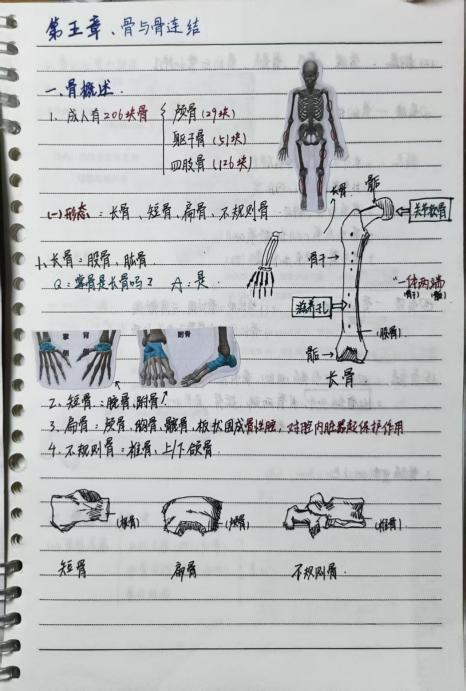 第五章、骨与骨连结
一.骨概述.
1. 成人有206块骨
颅骨(29块)
躯干骨(51块)
四肢骨(126块)
(一)形态:长骨、短骨、扁骨、不规则骨
长骨
骺
关节软骨
1、长骨:股骨、肱骨
Q:掌骨是长骨吗? A:是
骨干
"一体两端"
(骨干) (骺)
滋养孔
(股骨)
骺
长骨
掌骨
跗骨
2、短骨:腕骨、跗骨
3、扁骨:颅骨、胸骨、髋骨、板状围成骨性腔,对腔内脏器起保护作用
4、不规则骨:椎骨、上/下颌骨
(椎骨)
短骨
扁骨
不规则骨.